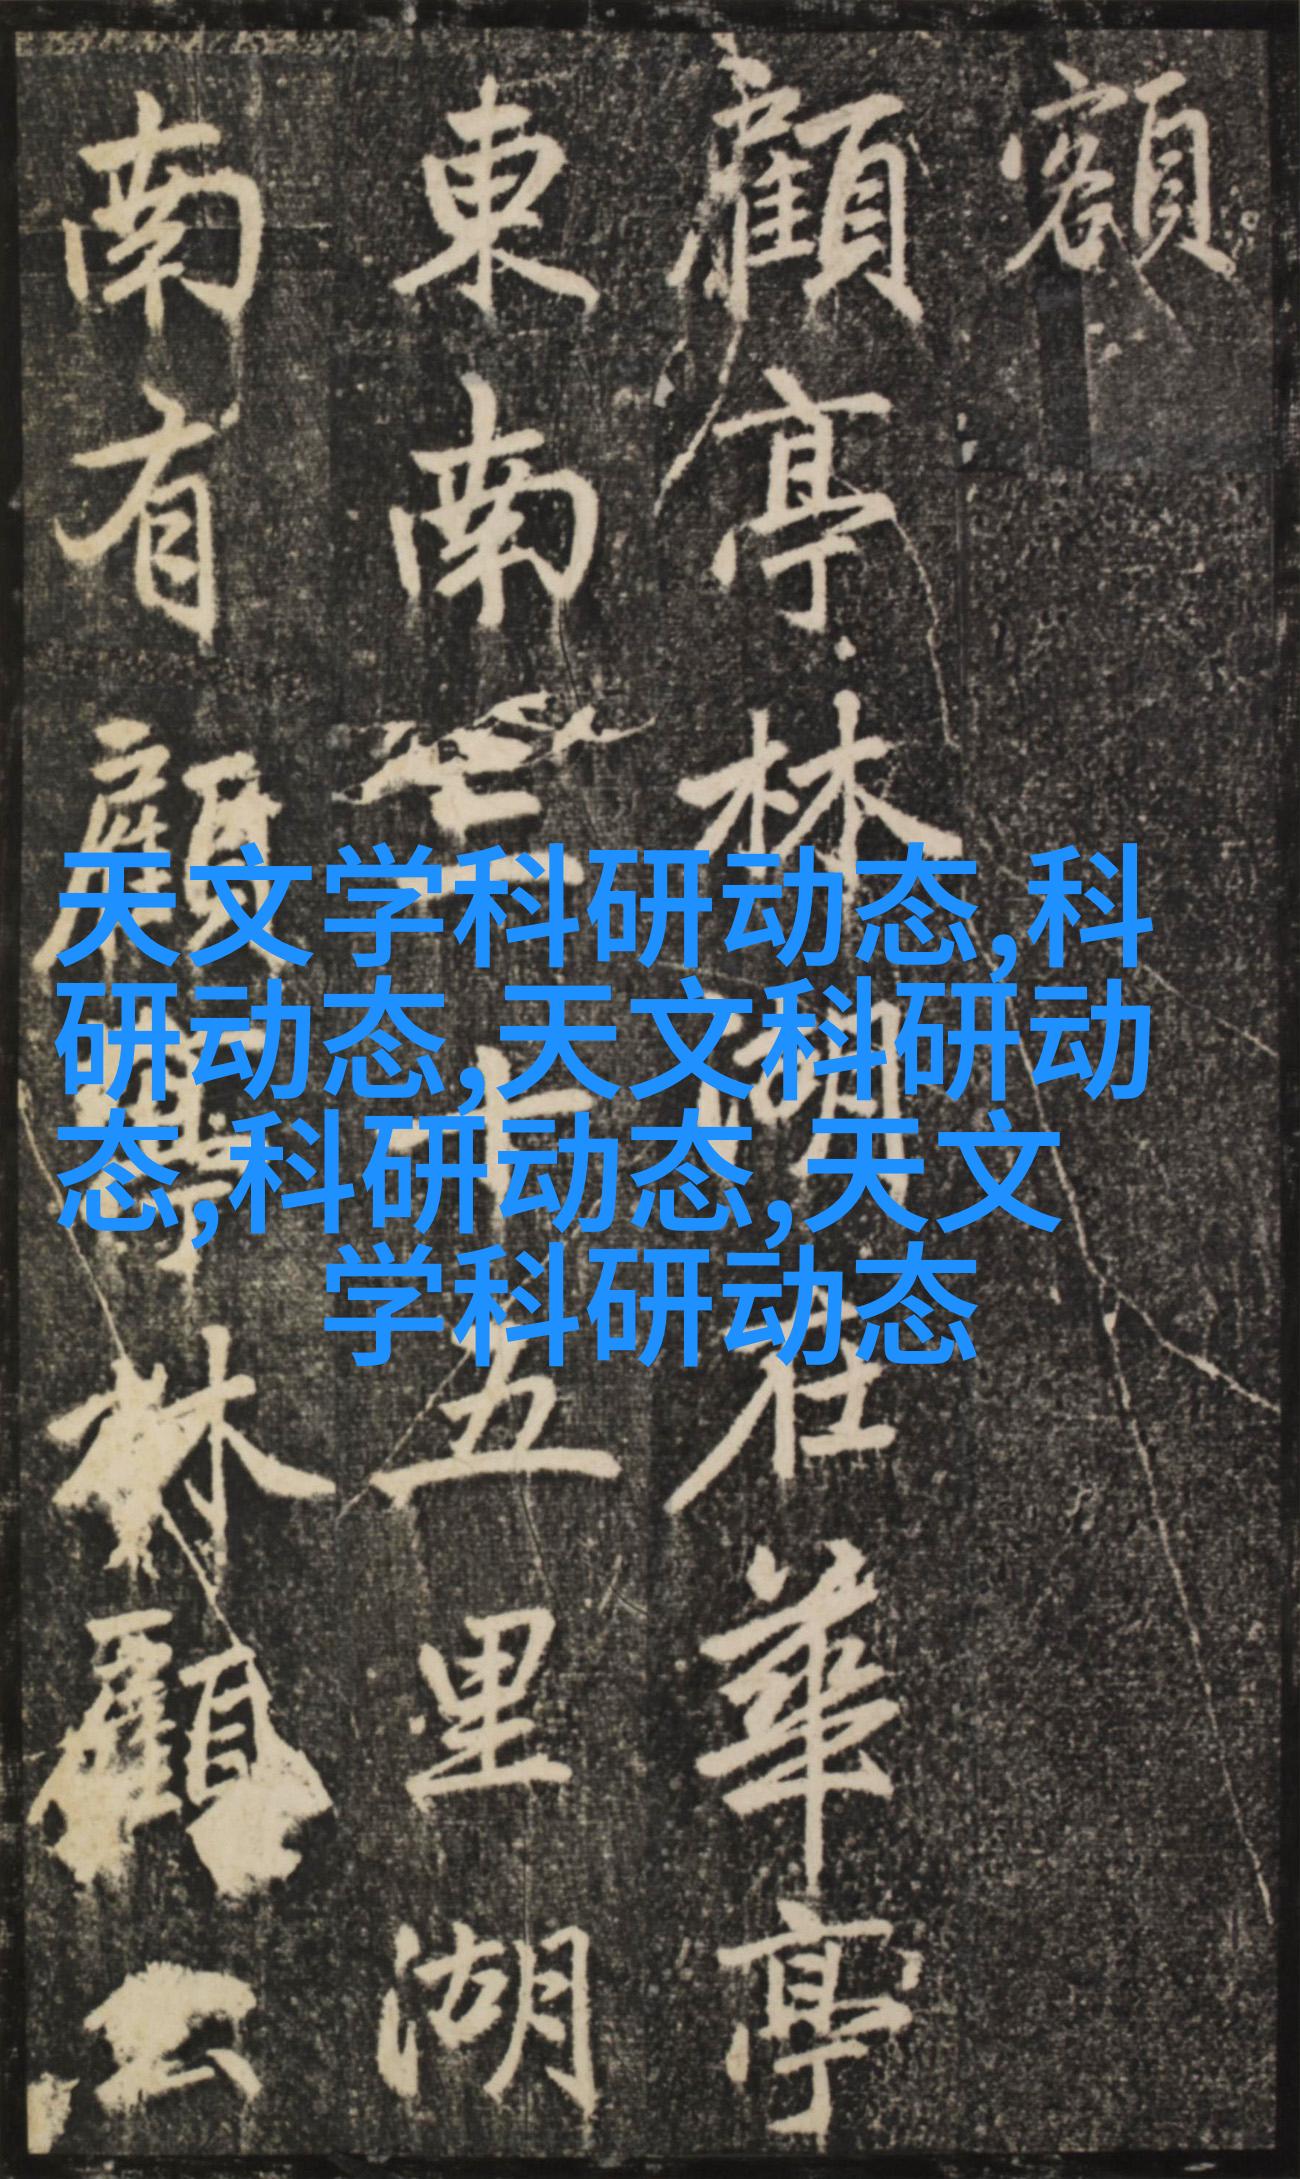 額
顧亭林湖在華亭
東南三十五里湖
南有顧亭林顧公
天文学科研动态,科
研动态,天文科研动
态,科研动态,天文
学科研动态